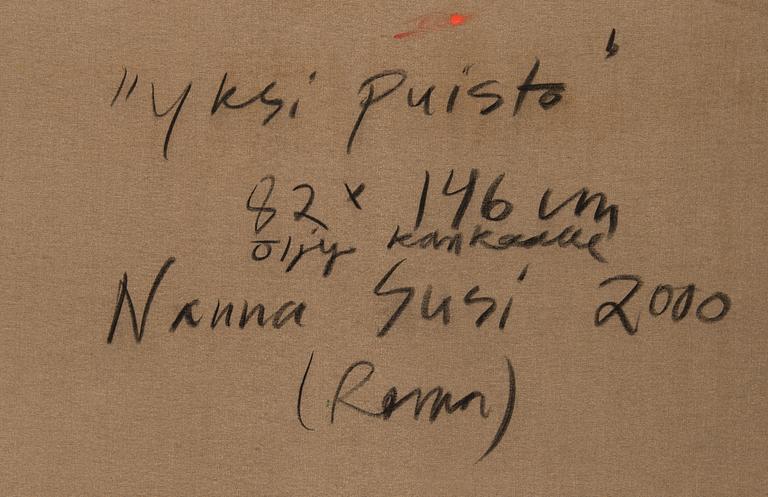 "Yksi puisto"
82 x 146 cm
öljy kankaalle
Nanna Susi 2000
(Roma)